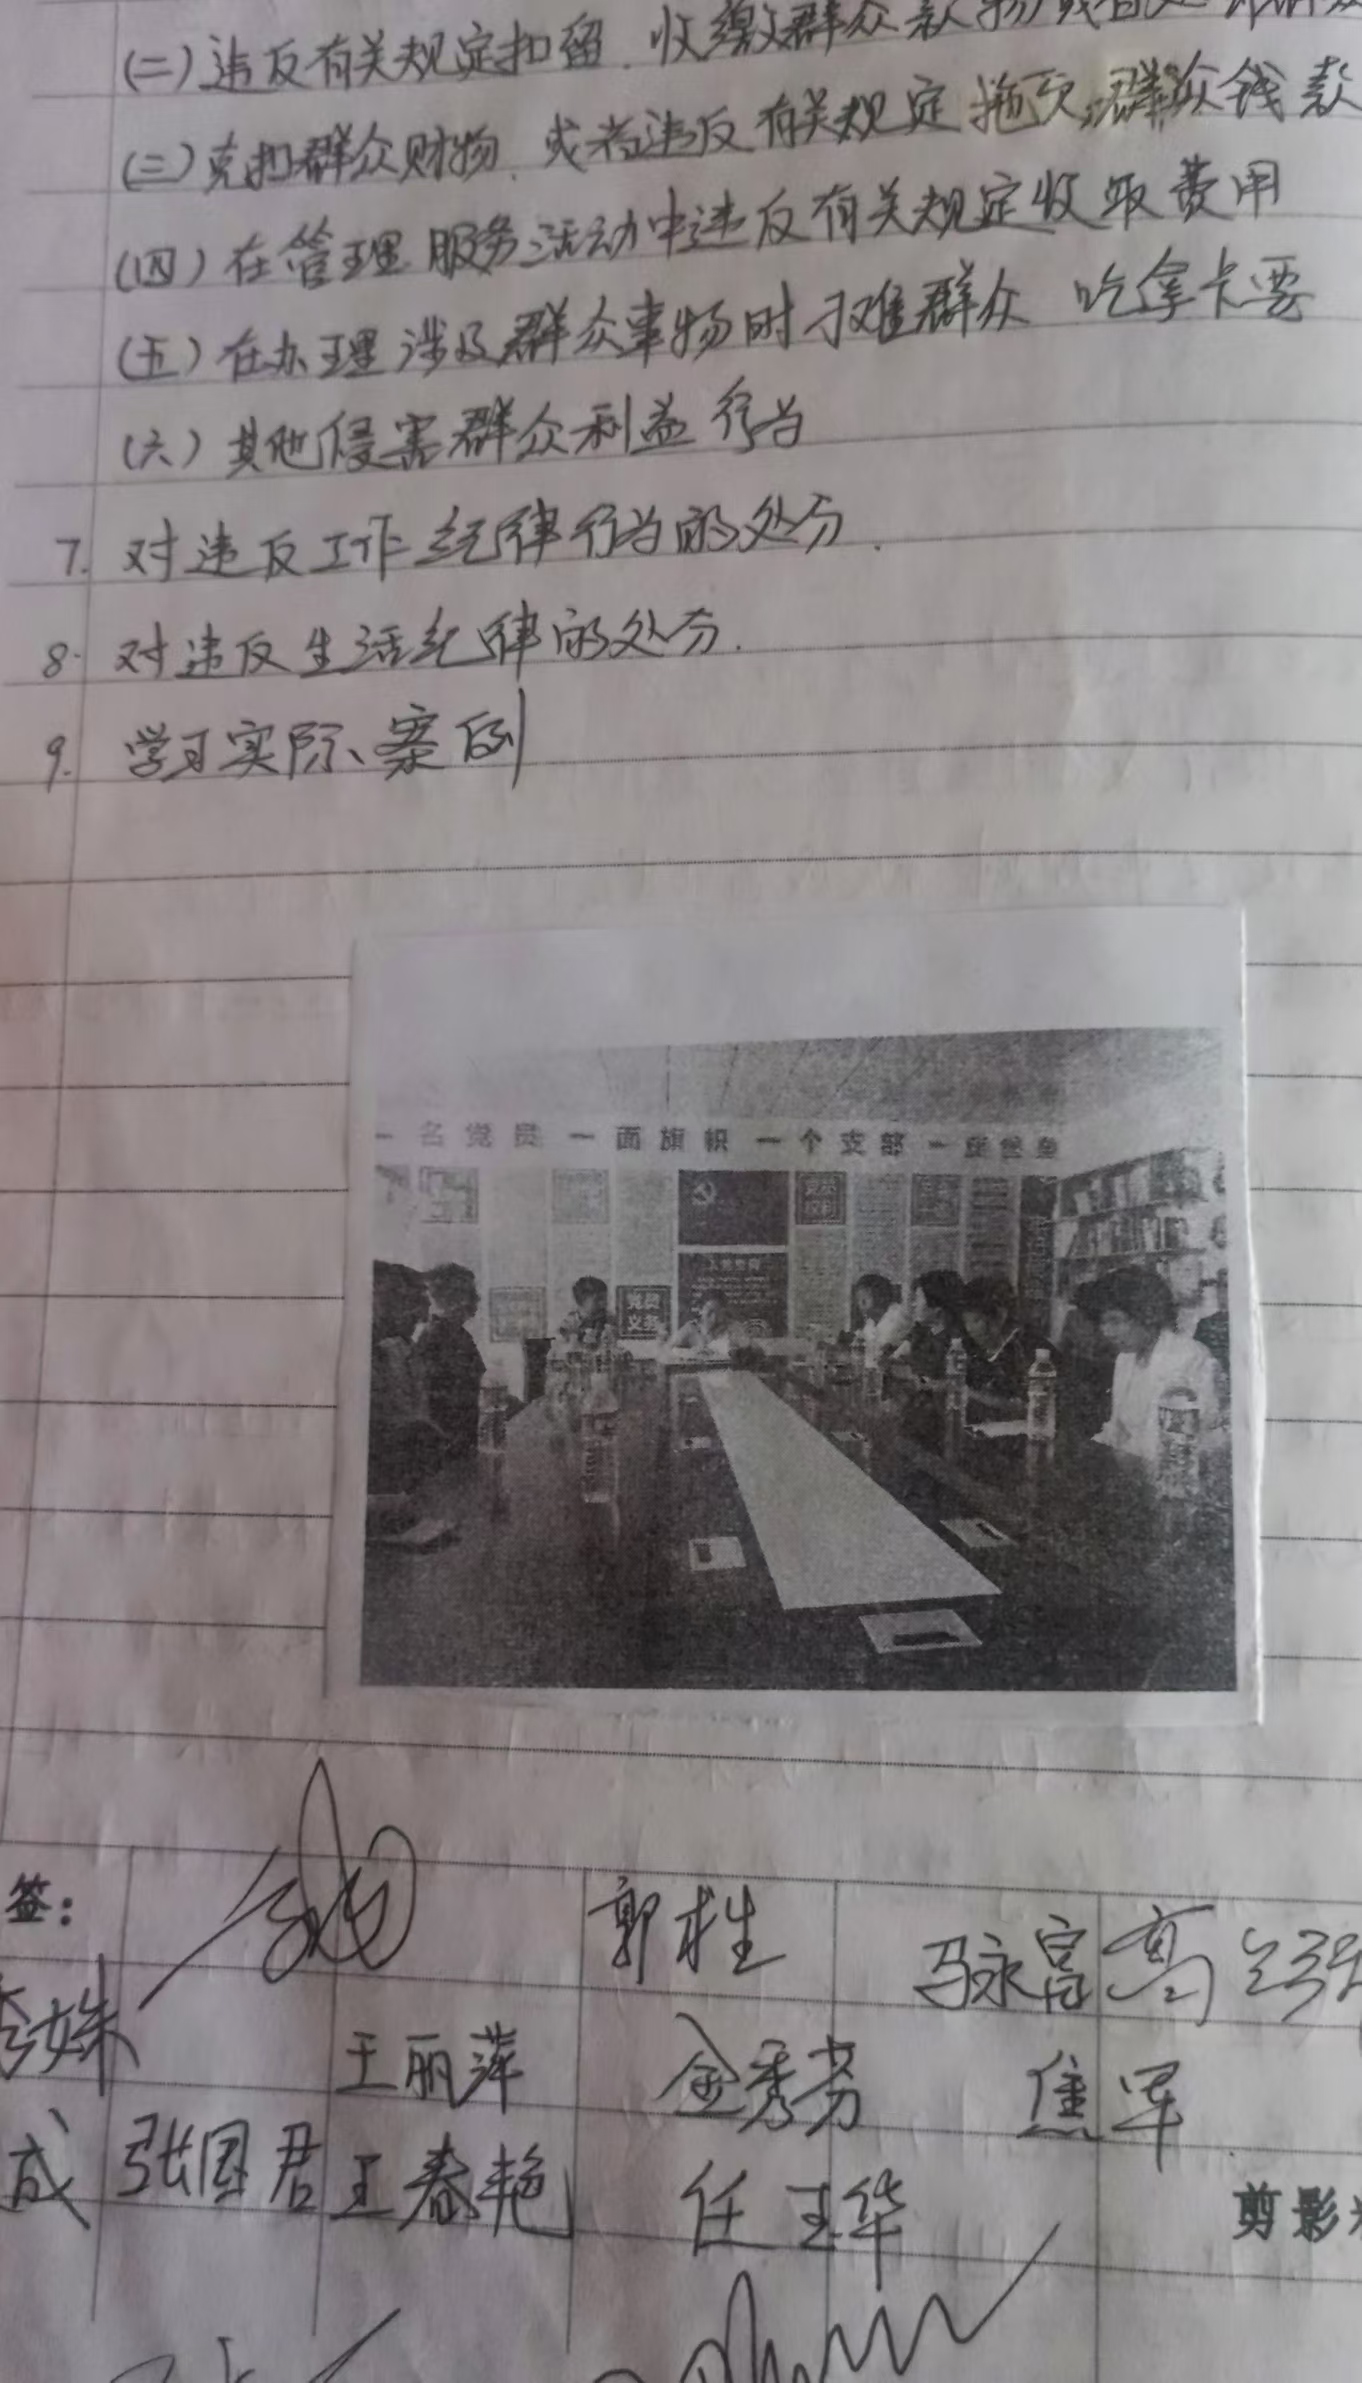 (二)违反有关规定扣留、收缴群众款物或者处
(三)克扣群众财物、或者违反有关规定拖欠群众钱款
(四)在管理服务活动中违反有关规定收取费用
(五)在办理涉及群众事物时刁难群众 吃拿卡要
(六)其他侵害群众利益行为
7. 对违反工作纪律行为的处分.
8. 对违反生活纪律的处分.
9. 学习实际案例
一名党员 一面旗帜 一个支部 一座堡垒
党员
权利
党员
义务
签:
郭桂生
冯永富
高
姝
王丽萍
金秀芳
焦军
成
张国君
王春艳
任玉华
剪影